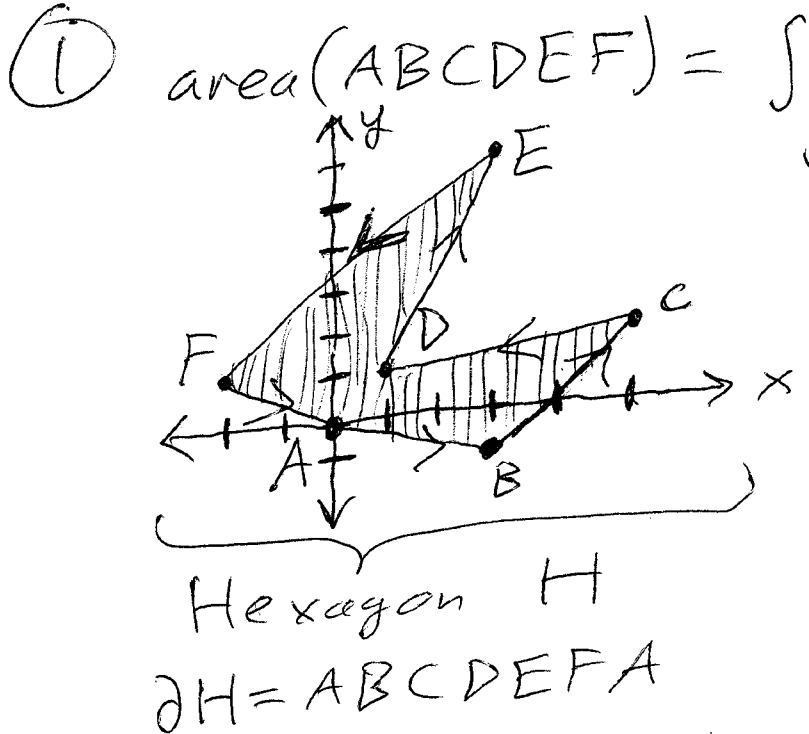 ① area(ABCDEF) = ∫
y
E
C
D
F
x
A
B
Hexagon H
∂H = ABCDEFA